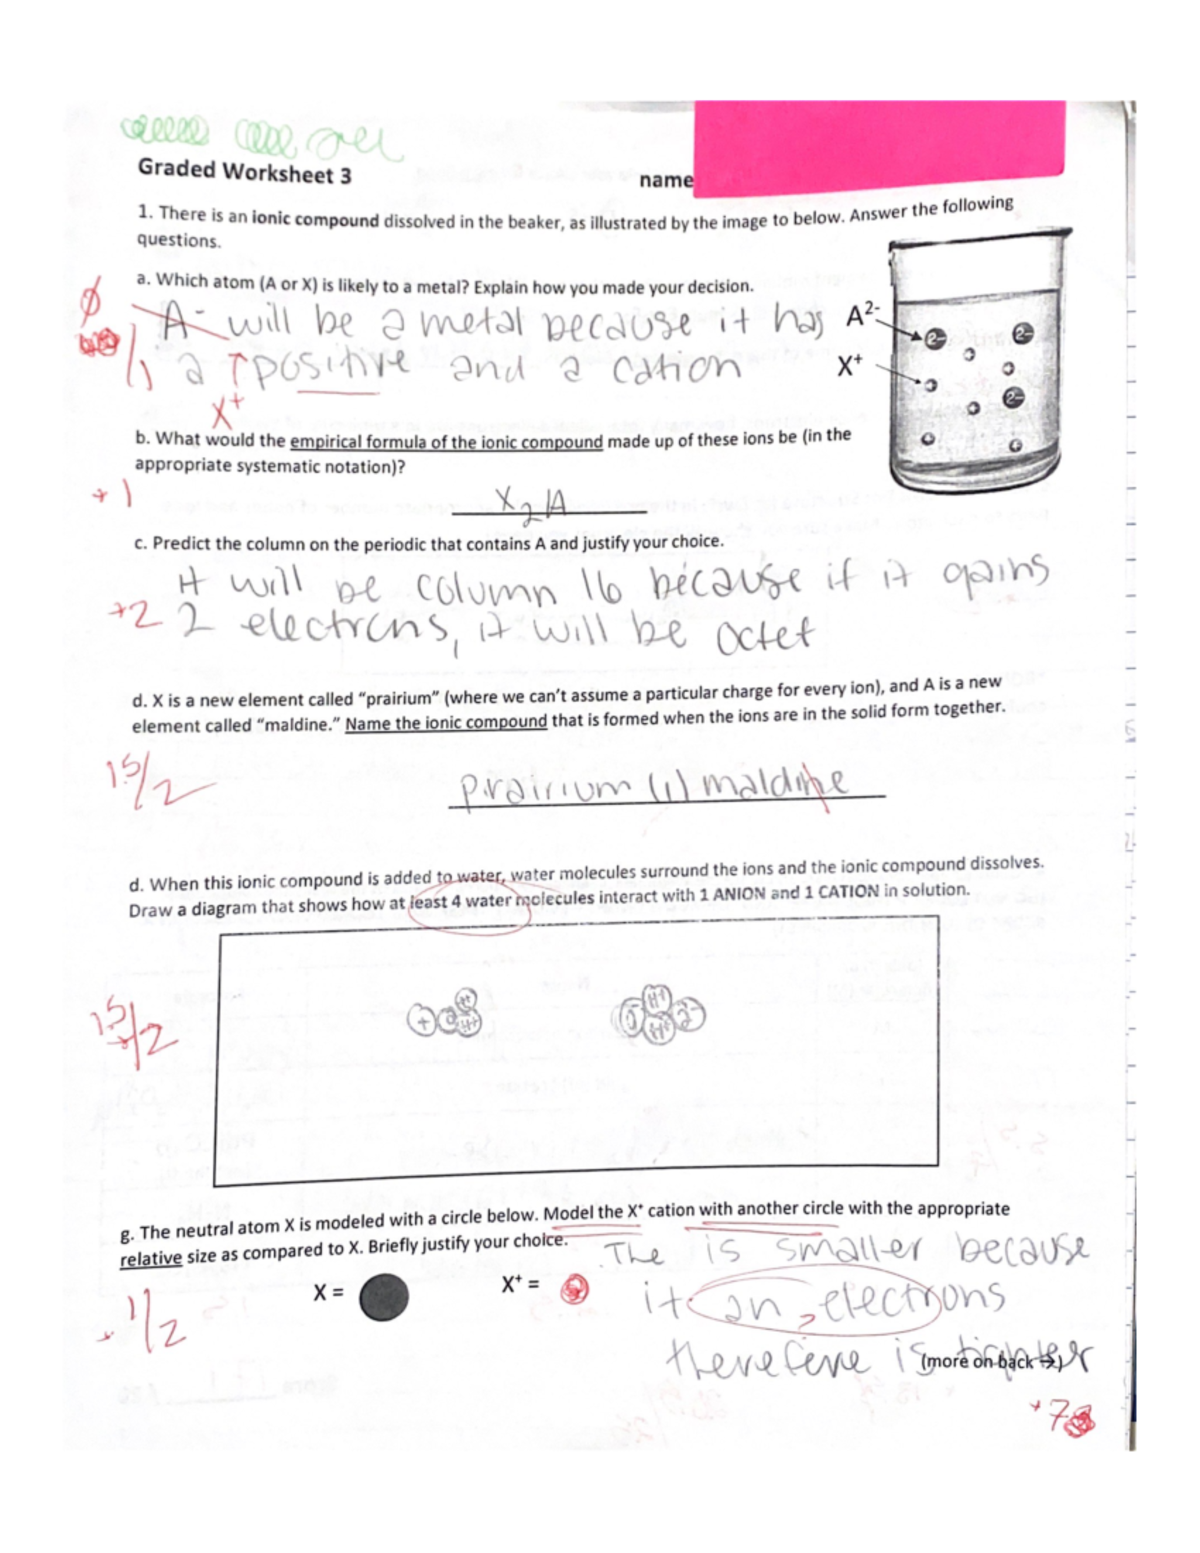 Graded Worksheet 3
name
1. There is an ionic compound dissolved in the beaker, as illustrated by the image to below. Answer the following
questions.
a. Which atom (A or X) is likely to a metal? Explain how you made your decision.
A- will be a metal because it has
a positive and a cation
X+
/1
A2-
X+
2-
2-
2-
b. What would the empirical formula of the ionic compound made up of these ions be (in the
appropriate systematic notation)?
+1
X2A
c. Predict the column on the periodic that contains A and justify your choice.
It will be column 16 because if it gains
+2
2 electrons, it will be octet
d. X is a new element called “prairium” (where we can’t assume a particular charge for every ion), and A is a new
element called “maldine.” Name the ionic compound that is formed when the ions are in the solid form together.
1.5/2
prairium (1) maldine
d. When this ionic compound is added to water, water molecules surround the ions and the ionic compound dissolves.
Draw a diagram that shows how at least 4 water molecules interact with 1 ANION and 1 CATION in solution.
1.5/2
+
H+
H+
H+
2-
g. The neutral atom X is modeled with a circle below. Model the X+ cation with another circle with the appropriate
relative size as compared to X. Briefly justify your choice.
The is smaller because
X =
X+ =
it an electrons
1/2
therefore is tighter
(more on back →)
+7